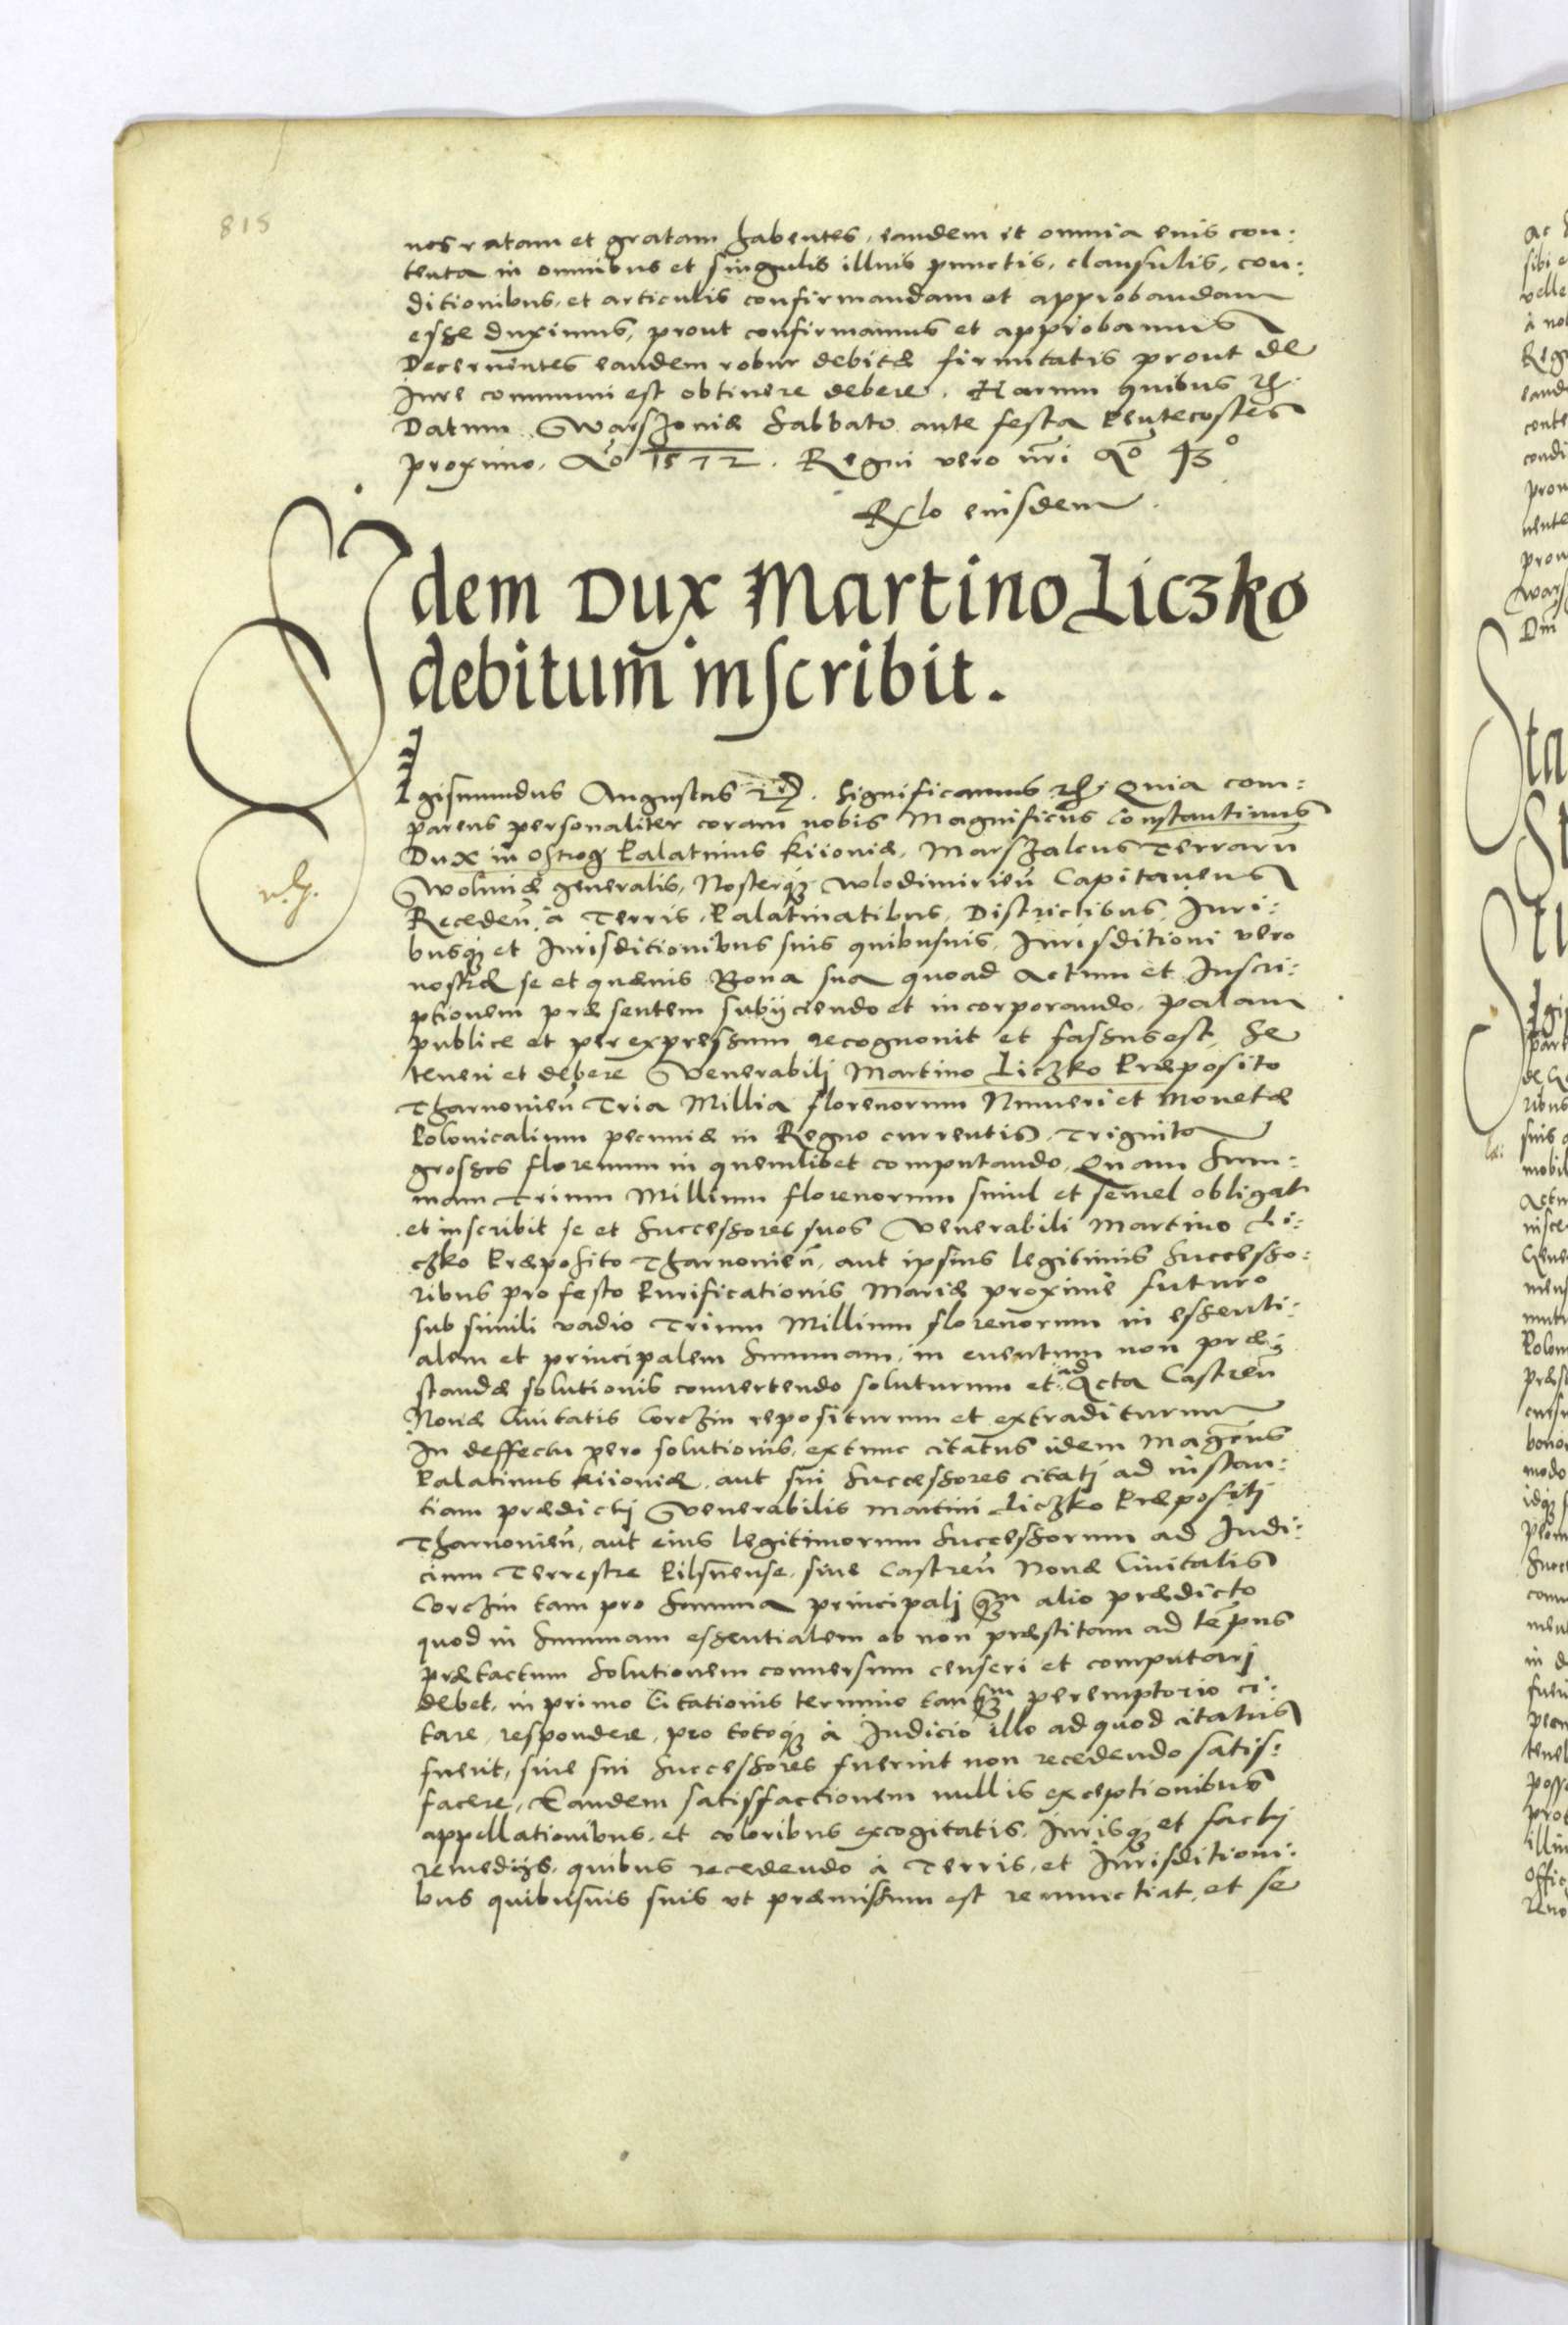 815
nos ratam et gratam habentes, eandem et omnia eius con:
tenta in omnibus et singulis illius punctis, clausulis, con:
ditionibus, et articulis confirmandam et approbandam
esse duximus, prout confirmamus et approbamus
Decernentes eandem robur debitæ firmitatis prout de
Iure communi est obtinere debere. Harum quibus rc.
Datum Warszoviæ Sabbato ante festa Pentecostes
proximo. Ao 1572. Regni vero nri Ao 43o
Rlo eiusdem.
Idem Dux Martino Liczko
debitum inscribit.
Sigismundus Augustus rc. Significamus rc. Quia com:
parens personaliter coram nobis Magnificus Constantinus
Dux in Ostrog Palatinus Kiioviæ, Marszalcus Terraru
Woliniæ generalis, Nosterq Wlodimirien Capitaneus
Receden à Terris, Palatinatibus, Districtibus, Iuri:
busq et Iurisditionibus suis quibusuis, Iurisditioni vero
nostræ se et quæuis Bona sua quoad Actum et Inscri:
ptionem præsentem subijciendo et incorporando, palam
publice et per expressum recognouit et fassus est, Se
teneri et debere Venerabilj Martino Liczko Præposito
Tharnovien Tria Millia florenorum Numeri et Monetæ
Polonicalium pecuniæ in Regno currentis, Triginta
grossos florenum in quemlibet computando, Quam Sum:
mam Trium Millium florenorum simul et semel obligat
et inscribit se et Successores suos Venerabili Martino Li:
czko Præposito Tharnovien, aut ipsius legitimis Successo:
ribus pro festo Purificationis Mariæ proxime futuro
sub simili vadio Trium Millium florenorum in essenti:
alem et principalem Summam, in euentum non præ:
standæ solutionis conuertendo soluturum et ad Acta Castren
Nouæ Ciuitatis Corczin repositurum et extraditurum
In deffectu vero solutionis, extunc citatus idem Magcus
Palatinus Kiioviæ, aut sui Successores citatj ad instan:
tiam prædictj Venerabilis Martini Liczko Præpositj
Tharnovien, aut eius legitimorum Successorum ad Iudi:
cium Terrestre Pilsnense, siue Castren Nouæ Ciuitatis
Corczin tam pro Summa principalj qm alio prædicto
quod in Summam essentialem ob non præstitam ad tempus
prætactum Solutionem conuersum censeri et computarj
debet, in primo Citationis termino tanqm peremptorio ci:
tare, respondere, pro totoq à Iudicio illo ad quod citatus
fuerit, siue sui Successores fuerint non recedendo satis:
facere, Eandem satisfactionem nullis exceptionibus
appellationibus, et coloribus excogitatis, Iurisq et factj
remedijs, quibus recedendo à Terris, et Iurisditioni:
bus quibusuis suis vt præmissum est renunctiat, et se